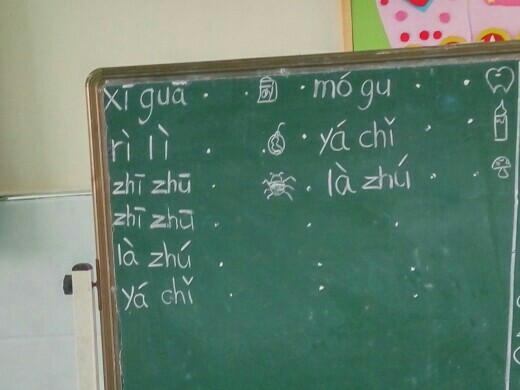 xī guā
mó gu
rì lì
yá chǐ
zhī zhū
là zhú
zhī zhū
là zhú
yá chǐ